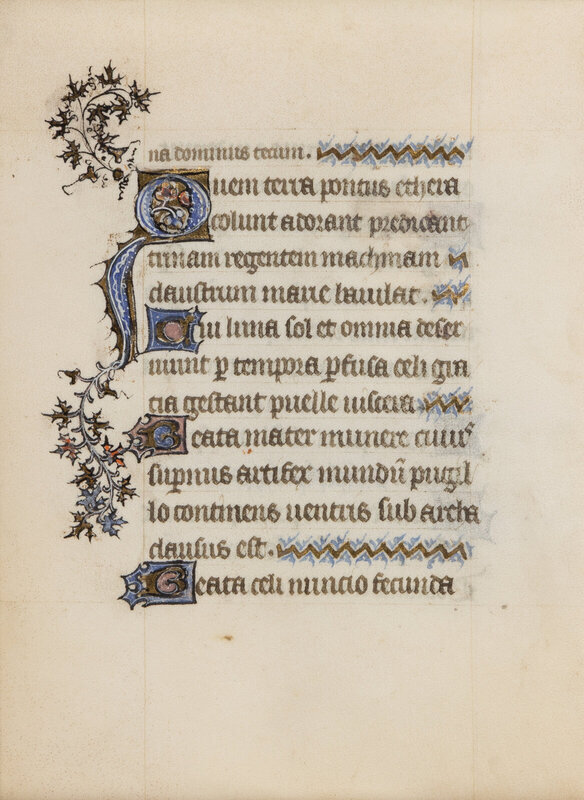 na dominus tecum.
Quem terra pontus ethera
colunt adorant predicant
trinam regentem machinam
claustrum marie baiulat.
Cui luna sol et omnia deser
uiunt p tempora pfusa celi gra
cia gestant puelle uiscera
Beata mater munere cuius
supnus artifex mundū pugil
lo continens uentris sub archa
clausus est.
Beata celi nuncio fecunda